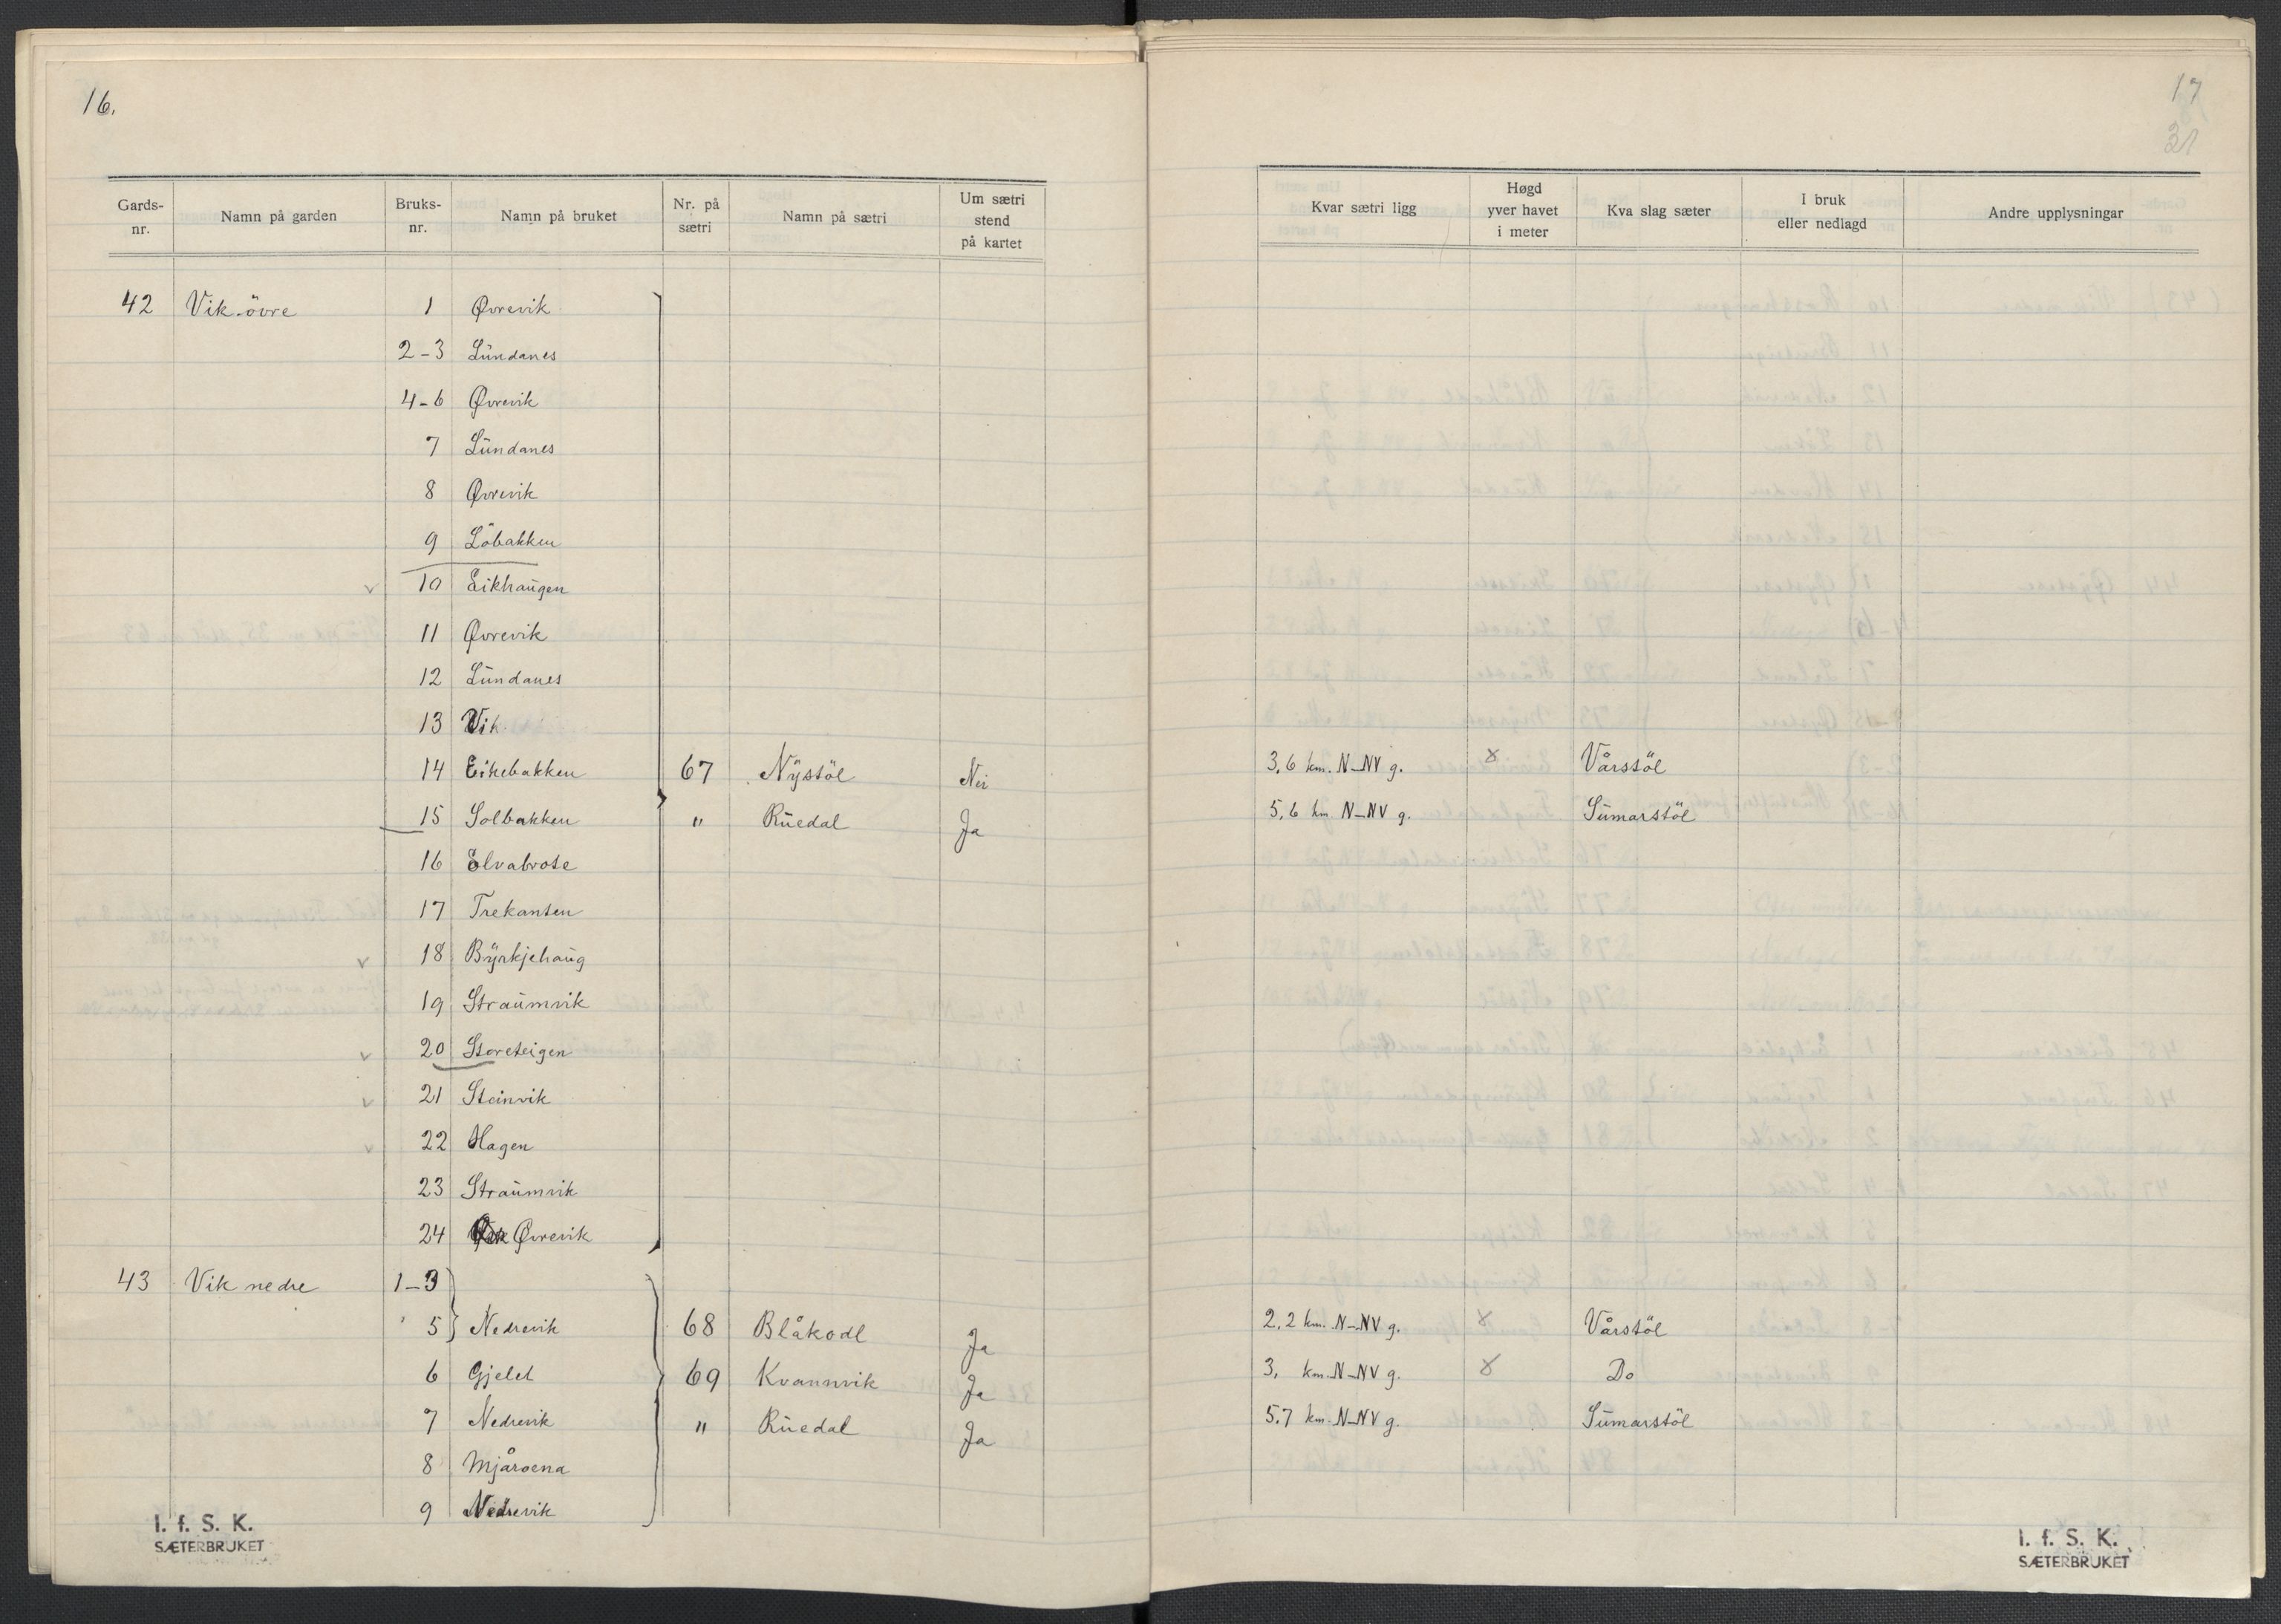 16.
Gards-nr. Namn på garden Bruks-nr. Namn på bruket Nr. på sætri Namn på sætri Um sætri stend på kartet
42 Vik-övre 1 Øvrevik
2-3 Lündanes
4-6 Øvrevik
7 Lündanes
8 Øvrevik
9 Löbakken
10 Eikhaügen
11 Øvrevik
12 Lündanes
13 Vik
14 Eikebakken 67 Nÿstöl Nei
15 Solbakken " Rüedal Ja
16 Elvabrote
17 Trekanten
18 Bÿrkjehaüg
19 Straümvik
20 Storeteigen
21 Steinvik
22 Hagen
23 Straümvik
24 Øvrevik
43 Vik nedre 1-3
5 Nedrevik 68 Blåkodl Ja
6 Gjelet 69 Kvannvik Ja
7 Nedrevik " Rüedal Ja
8 Mjåroena
9 Nedrevik
I. f. S. K.
SÆTERBRUKET
17
31
Kvar sætri ligg Høgd yver havet i meter Kva slag sæter I bruk eller nedlagd Andre upplysningar
3,6 km. N-NV g. x Vårstöl
5,6 km N-NV g. Sümarstöl
2,2 km. N-NV g. x Vårstöl
3, km. N-NV g. x Do
5.7 km. N-NV g. Sümarstöl
I. f. S. K.
SÆTERBRUKET